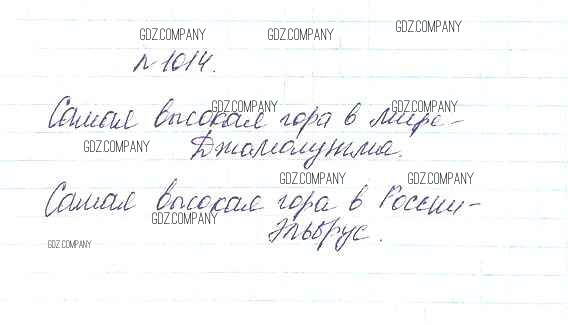 GDZ.COMPANY GDZ.COMPANY GDZ.COMPANY
№1014.
GDZ.COMPANY GDZ.COMPANY
Самая высокая гора в мире-
GDZ.COMPANY
Джомолунгма.
GDZ.COMPANY GDZ.COMPANY
Самая высокая гора в России-
GDZ.COMPANY
Эльбрус.
GDZ.COMPANY